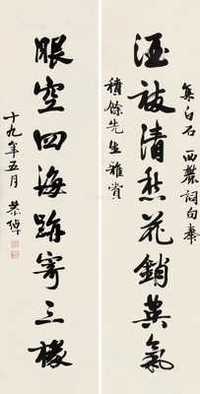 集白石 西麓词句奉
積餘先生雅賞
酒祓清愁花銷英氣
眼空四海跡寄三椽
十九年五月 恭綽